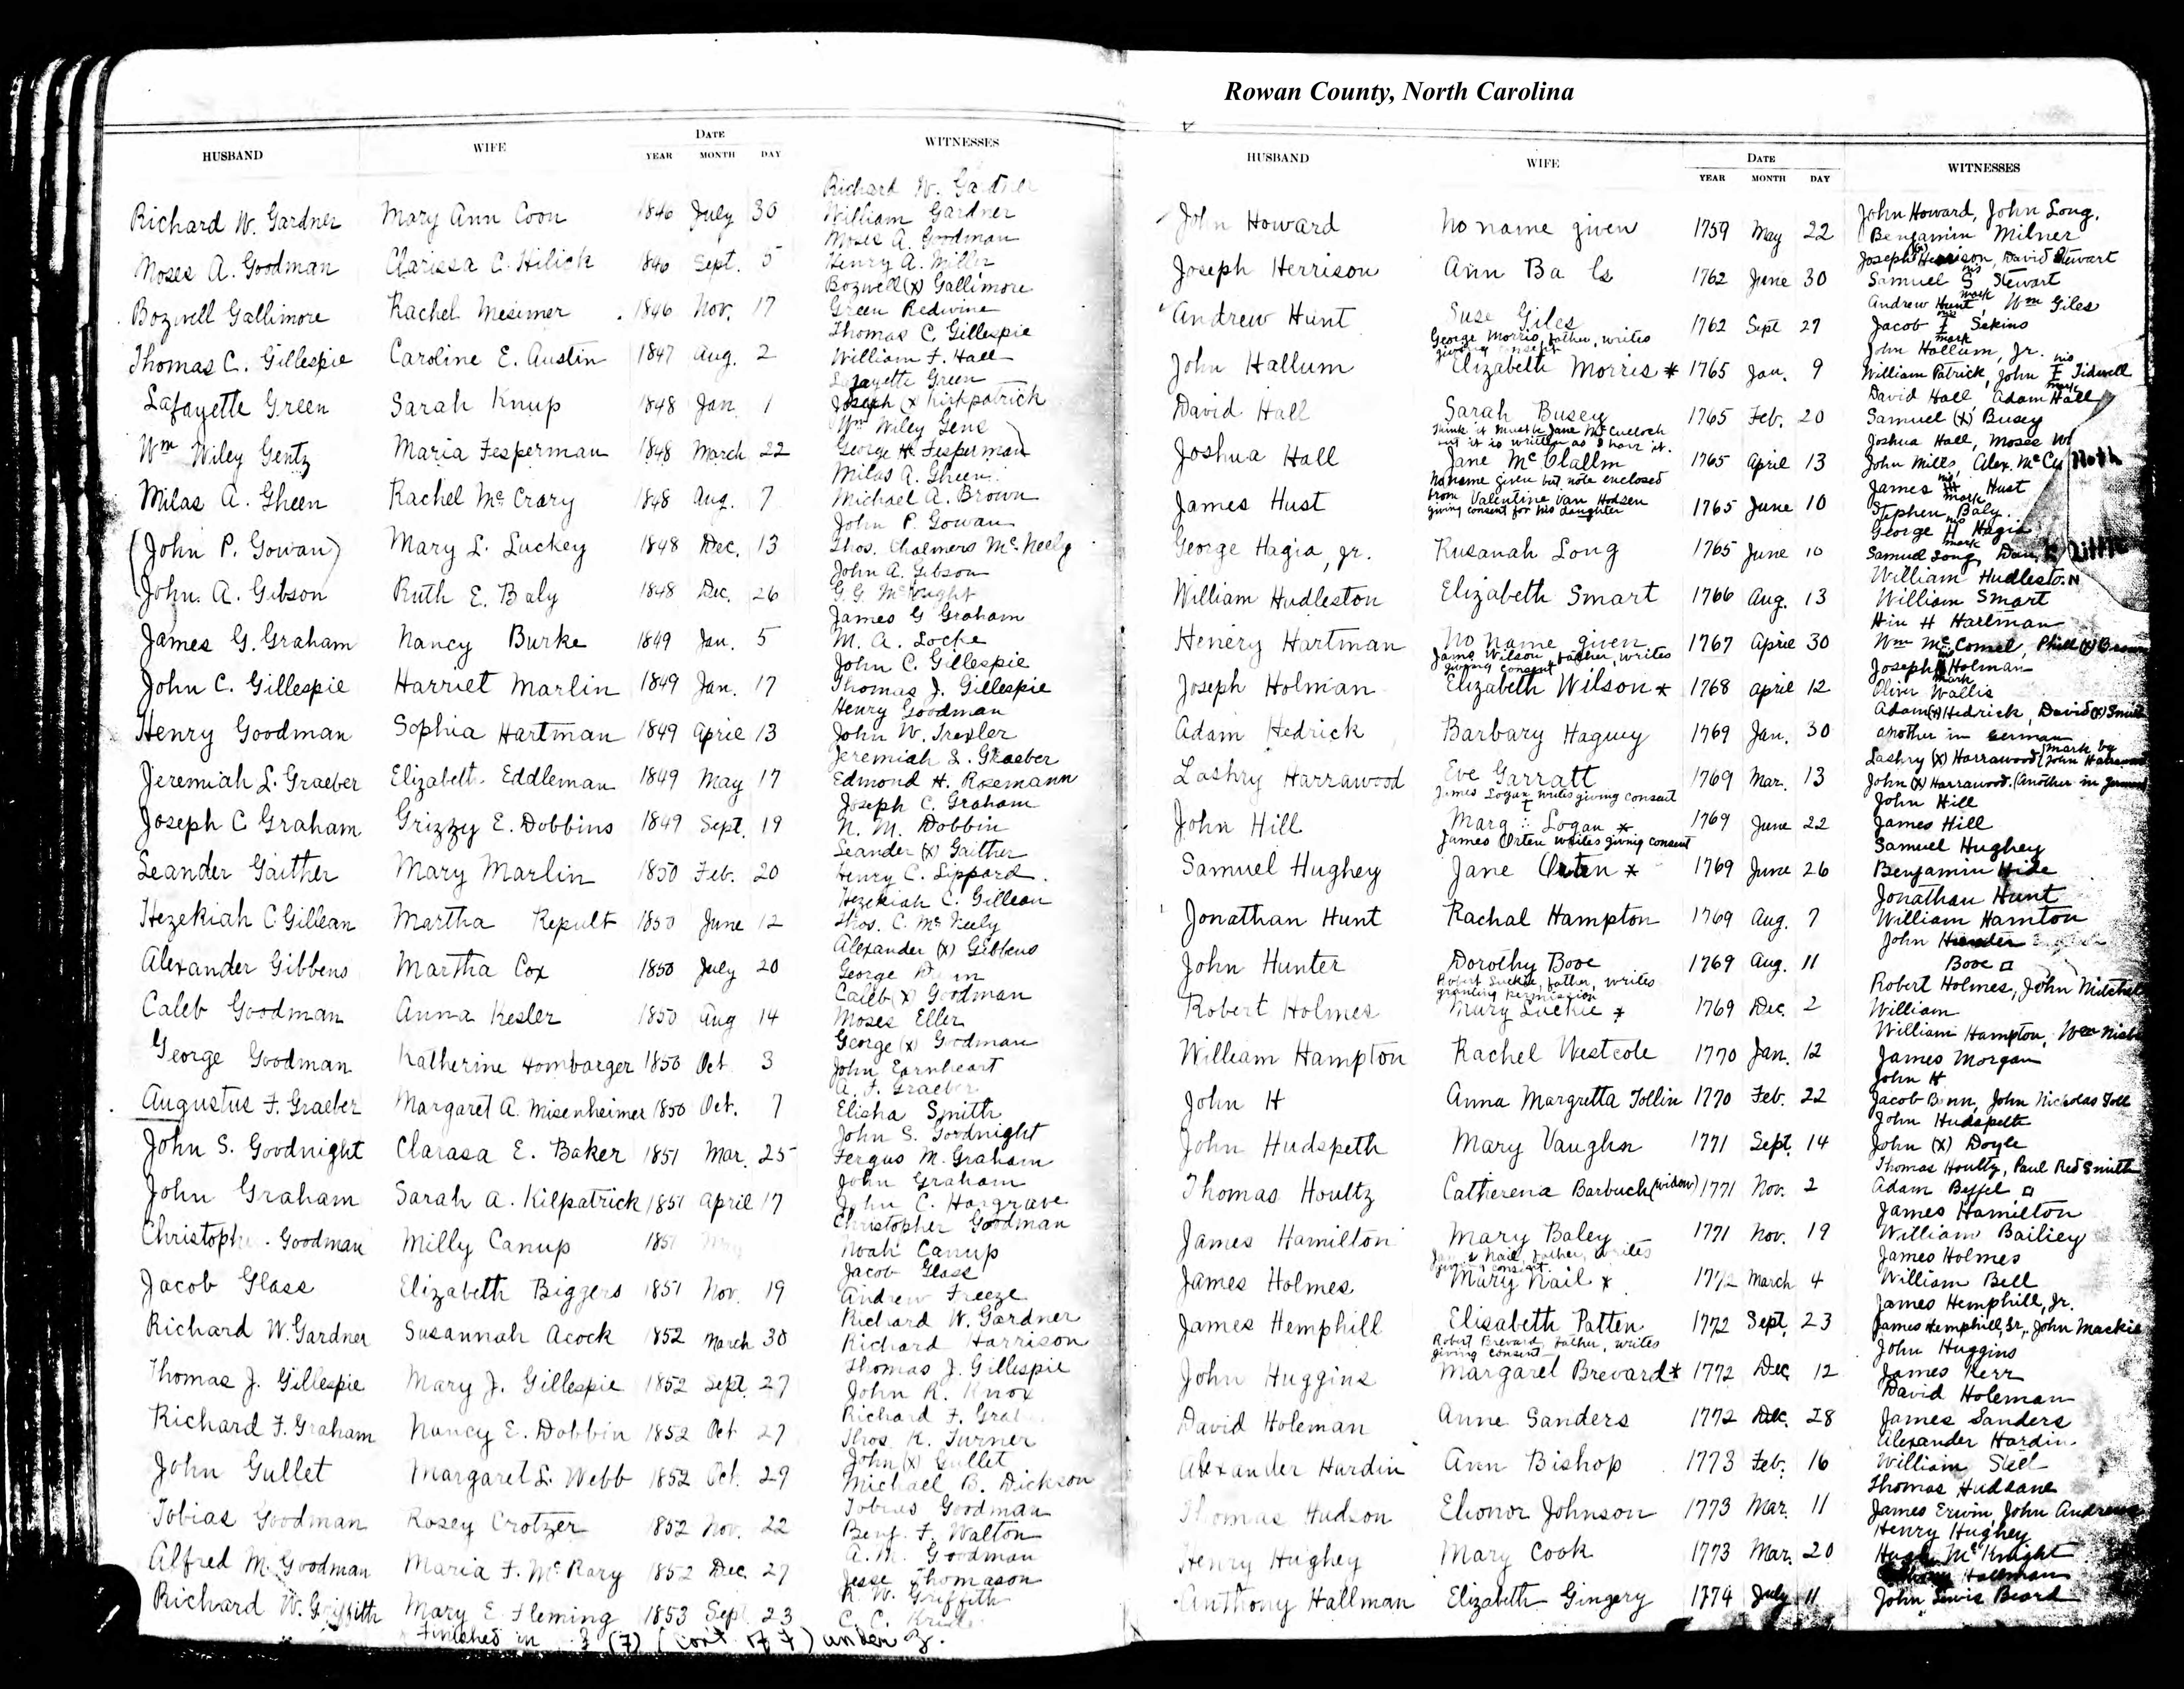 Rowan County, North Carolina
HUSBAND WIFE DATE WITNESSES
YEAR MONTH DAY
Richard W. Gardner
Richard W. Gardner Mary Ann Coon 1846 July 30 William Gardner
Moses A. Goodman
Moses A. Goodman Clarissa C. Hilick 1846 Sept. 5 Henry A. Miller
Bozwell (X) Gallimore
Bozwell Gallimore Rachel Mesimer 1846 Nov. 17 Green Redwine
Thomas C. Gillespie
Thomas C. Gillespie Caroline E. Austin 1847 Aug. 2 William F. Hall
Lafayette Green
Lafayette Green Sarah Knup 1848 Jan. 1 Joseph (X Kirkpatrick
Wm Wiley Gene
Wm Wiley Gentz Maria Fesperman 1848 March 22 George H. Fesperman
Milas A. Gheen
Milas A. Gheen Rachel McCrary 1848 Aug. 7 Michael A. Brown
John P. Gowan
(John P. Gowan) Mary L. Luckey 1848 Dec. 13 Thos. Chalmers McNeely
John A. Gibson
John. A. Gibson Ruth E. Baly 1848 Dec. 26 G. G. McKnight
James G Graham
James G. Graham Nancy Burke 1849 Jan. 5 M. A. Locke
John C. Gillespie
John C. Gillespie Harriet Marlin 1849 Jan. 17 Thomas J. Gillespie
Henry Goodman
Henry Goodman Sophia Hartman 1849 April 13 John W. Trexler
Jeremiah L. Graeber
Jeremiah L. Graeber Elizabeth Eddleman 1849 May 17 Edmond H. Rosemann
Joseph C. Graham
Joseph C Graham Grizzy E. Dobbins 1849 Sept. 19 N. M. Dobbin
Leander (X) Gaither
Leander Gaither Mary Marlin 1850 Feb. 20 Henry C. Lippard.
Hezekiah C. Gillean
Hezekiah C. Gillean Martha Repult 1850 June 12 Thos. C. McNeely
Alexander (X) Gibbens
Alexander Gibbens Martha Cox 1850 July 20 George
Caleb (X) Goodman
Caleb Goodman Anna Kesler 1850 Aug 14 Moses Eller
George (X) Goodman
George Goodman Katherine Hombarger 1850 Oct 3 John Earnheart
A. F. Graeber
Augustus F. Graeber Margaret A. Misenheimer 1850 Oct. 7 Elisha Smith
John S. Goodnight
John S. Goodnight Clarasa E. Baker 1851 Mar. 25 Fergus M. Graham
John Graham
John Graham Sarah A. Kilpatrick 1851 April 17 John C. Hargrave
Christopher Goodman
Christoph Goodman Milly Canup 1851 May Noah Canup
Jacob Glass
Jacob Glass Elizabeth Biggers 1851 Nov. 19 Andrew Freeze
Richard W. Gardner
Richard W. Gardner Susannah Acock 1852 March 30 Richard Harrison
Thomas J. Gillespie
Thomas J. Gillespie Mary J. Gillespie 1852 Sept. 27 John K. Knox
Richard F. Grah
Richard F. Graham Nancy E. Dobbin 1852 Oct 27 Thos. K. Turner
John (X) Gullet
John Gullet Margaret L. Webb 1852 Oct. 29 Michael B. Dickson
Tobias Goodman
Tobias Goodman Rosey Crotzer 1852 Nov. 22 Benj. F. Walton
A. M. Goodman
Alfred M. Goodman Maria F. McRary 1852 Dec. 27 Jesse Thomason
R. W. Griffith
Richard W. Griffith Mary E. Fleming 1853 Sept 23 C. C.
Finished in (7) (con't of 7) under
HUSBAND WIFE DATE WITNESSES
YEAR MONTH DAY
John Howard, John Long,
John Howard No name given 1759 May 22 Benjamin Milner
Joseph Herrison, David Stewart
Joseph Herrison Ann Ba ls 1762 June 30 Samuel S Stewart
his mark
Andrew Hunt, Wm Giles
Andrew Hunt Suse Giles 1762 Sept 27 Jacob Sekins
his mark
George Morris, father, writes
giving consent
John Hallum, Jr.
John Hallum Elizabeth Morris * 1765 Jan. 9 William Patrick, John I Tidwell
his mark
David Hall, Adam Hall
David Hall Sarah Busey 1765 Feb. 20 Samuel (X) Busey
Think it must be Jane McCulloch
but it is written as I have it.
Joshua Hall, Moses
Joshua Hall Jane McClallm 1765 April 13 John Mills, Alex. McCu
No name given but note enclosed
from Valentine Van Hodsen
giving consent for his daughter
James H Hust
his mark
James Hust 1765 June 10 Stephen Baly.
George H Hagia
his mark
George Hagia, Jr. Rusanah Long 1765 June 10 Samuel Long, Little
William Hudleston
William Hudleston Elizabeth Smart 1766 Aug. 13 William Smart
Hin H Hartman
Henery Hartman No name given 1767 April 30 Wm McConnel, Phill (X) Brown
James Wilson father, writes
giving consent
Joseph Holman
his mark
Joseph Holman Elizabeth Wilson * 1768 April 12 Oliver Wallis
Adam (X) Hedrick, David (X) Smith
Adam Hedrick Barbary Haguey 1769 Jan. 30 another in German
Lashry (X) Harrawood (mark by John Harrawood
Lashry Harrawood Eve Garratt 1769 Mar. 13 John (X) Harrawood. (Another in German)
James Logan writes giving consent
John Hill
John Hill Logan * 1769 June 22 James Hill
James Orten writes giving consent
Samuel Hughey
Samuel Hughey Jane Orten * 1769 June 26 Benjamin Hide
Jonathan Hunt
Jonathan Hunt Rachal Hampton 1769 Aug. 7 William Hamton
John Hunter
John Hunter Dorothy Booe 1769 Aug. 11 Booe
Robert Luckie, father, writes
granting permission
Robert Holmes, John Mitchel
Robert Holmes Mary Luckie * 1769 Dec. 2 William
William Hampton, Wm
William Hampton Rachel Westcote 1770 Jan. 12 James Morgan
John H
John H Anna Margretta Tollin 1770 Feb. 22 Jacob, John Nicholas Toll
John Hudspeth
John Hudspeth Mary Vaughn 1771 Sept. 14 John (X) Doyle
Thomas Houltz, Paul Red Smith
Thomas Houltz Catherena Barbuck (widow) 1771 Nov. 2 Adam
James Hamilton
James Hamilton Mary Baley 1771 Nov. 19 William Bailiey
Nail, father, writes
giving consent.
James Holmes
James Holmes Mary Nail * 1772 March 4 William Bell
James Hemphill, Jr.
James Hemphill Elisabeth Patten 1772 Sept. 23 James Hemphill, Sr., John Mackie
Robert Brevard father, writes
giving consent
John Huggins
John Huggins Margaret Brevard * 1772 Dec. 12 James Kerr
David Holeman
David Holeman Anne Sanders 1772 Dec. 28 James Sanders
Alexander Hardin
Alexander Hardin Ann Bishop 1773 Feb. 16 William Stell
Thomas Hudsane
Thomas Hudson Eleonor Johnson 1773 Mar. 11 James Erwin, John Andrews
Henry Hughey
Henry Hughey Mary Cook 1773 Mar. 20 Hugh McKnight
Hallman
Anthony Hallman Elizabeth Gingery 1774 July 11 John Lewis Beard